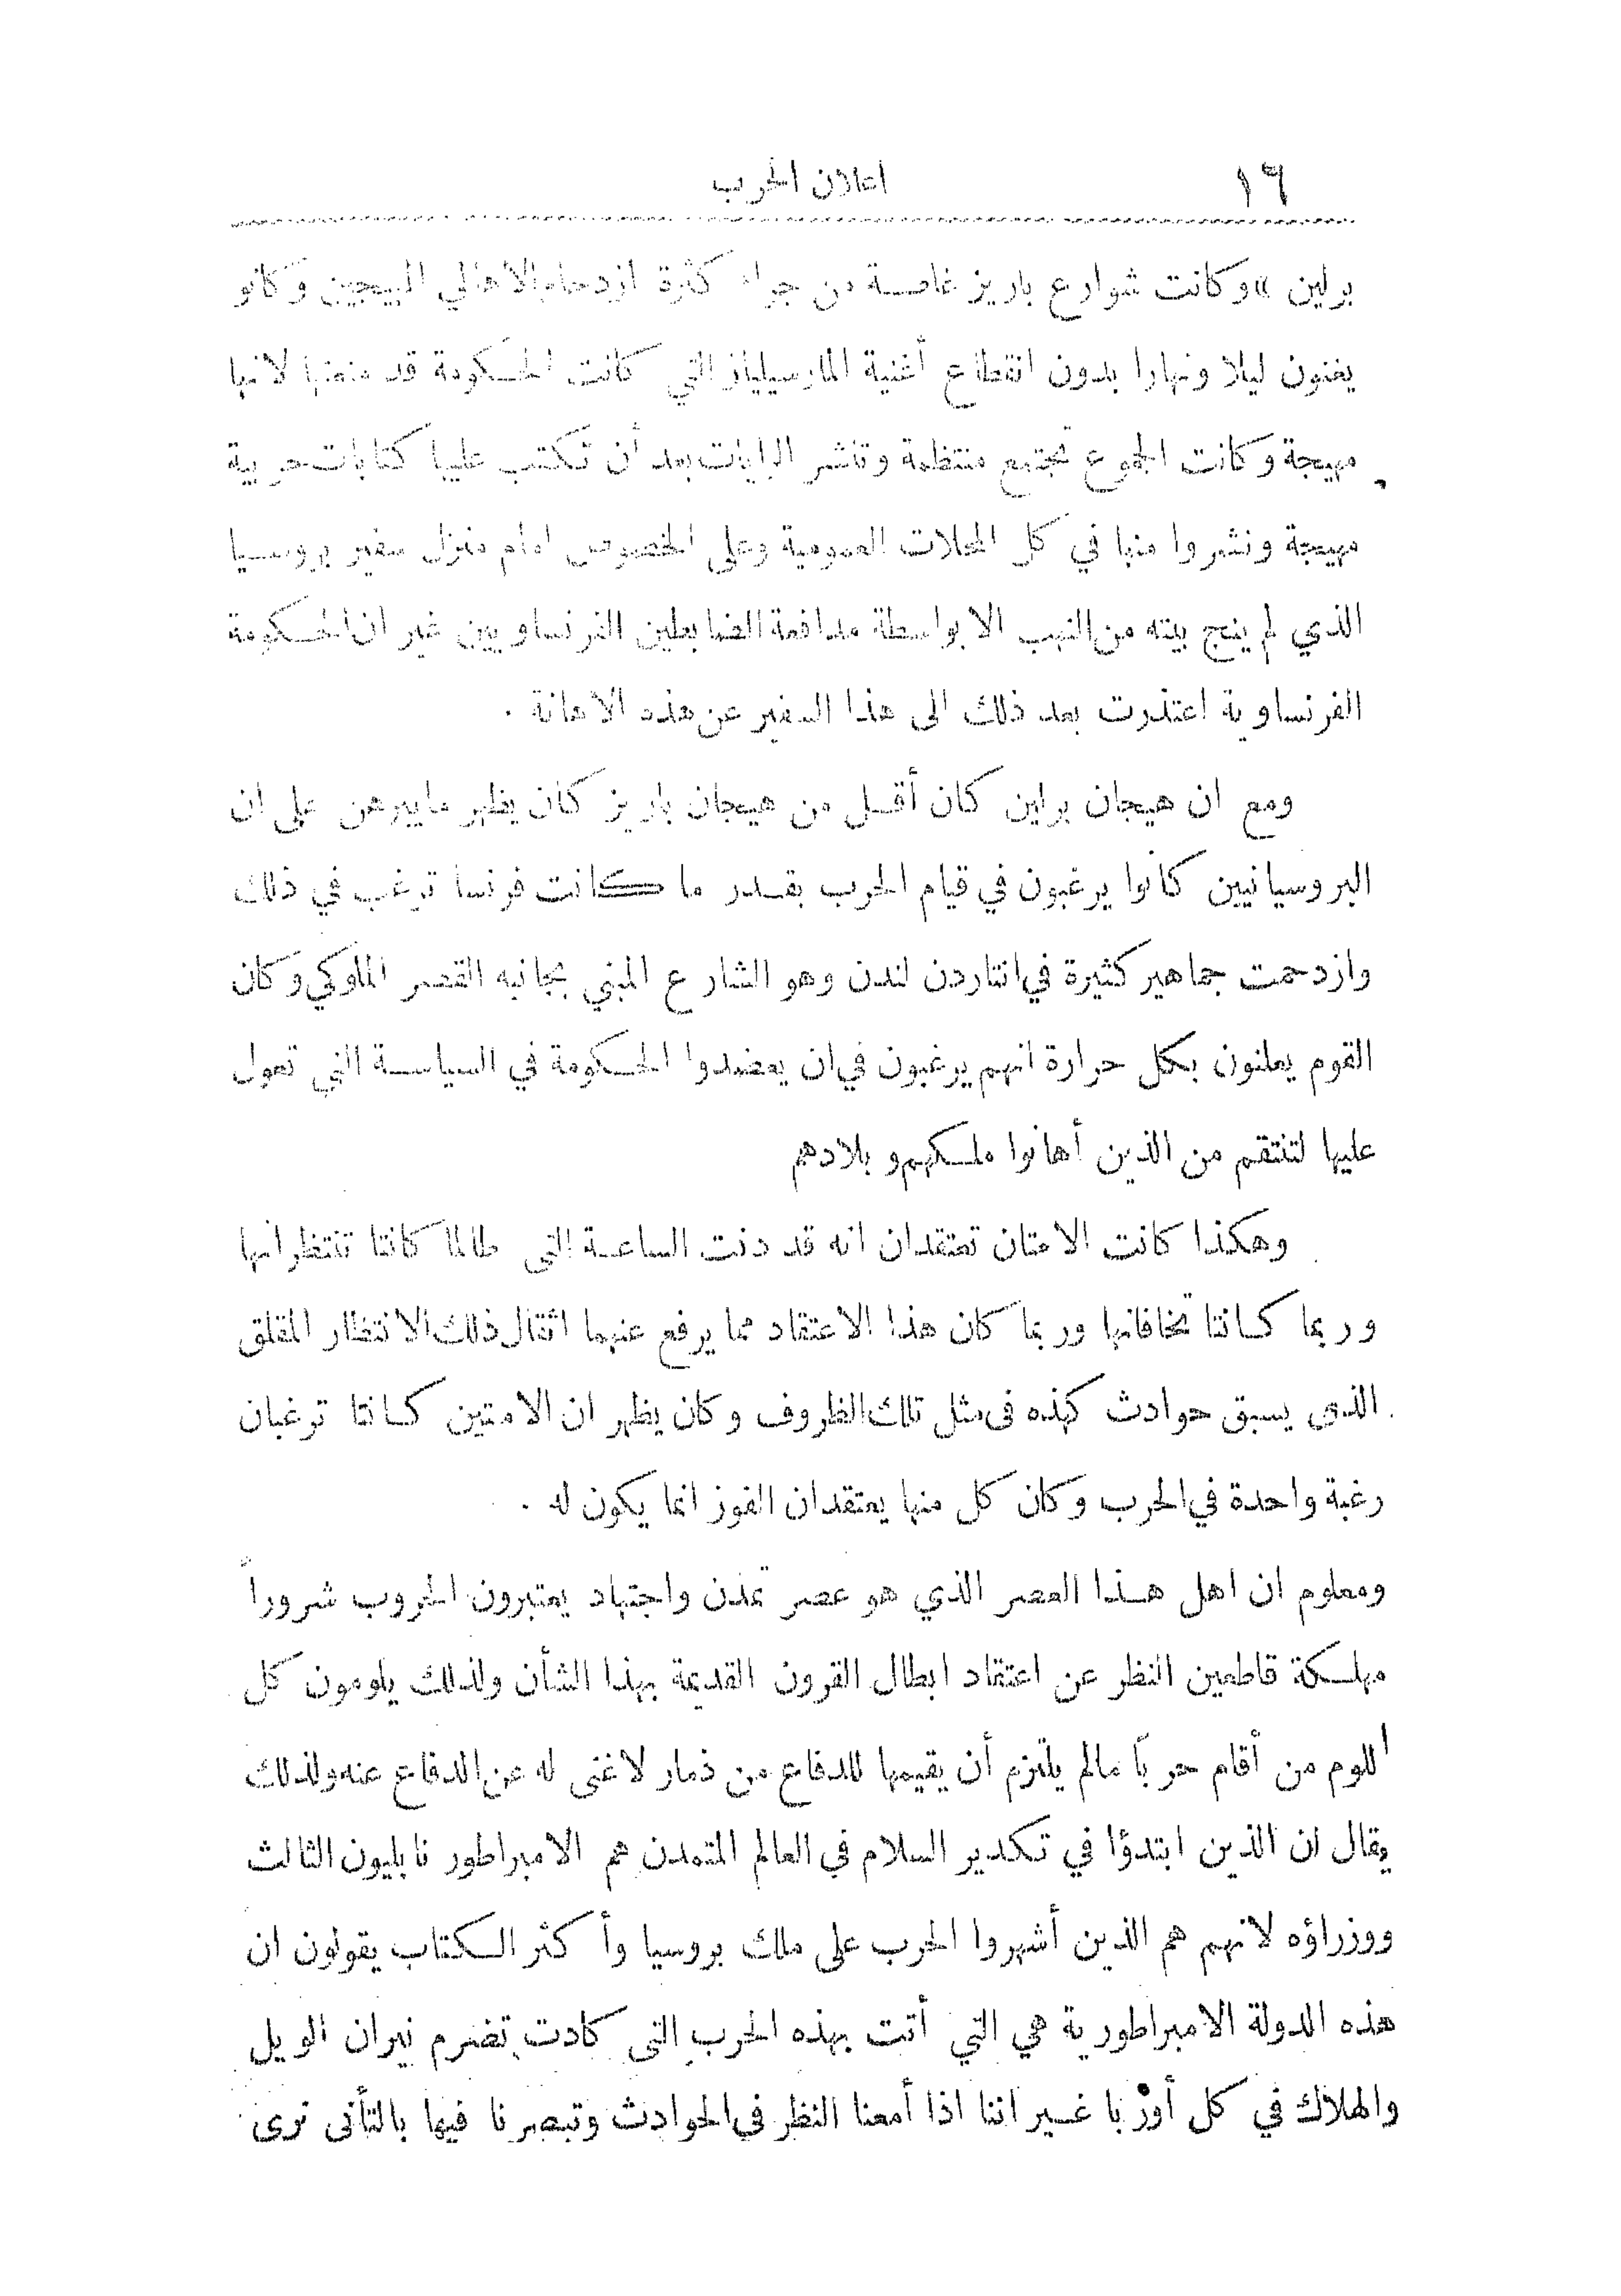 ١٦
اعلان الحرب
برلين » وكانت شوارع باريز غاصة من جراء كثرة ازدحام الاهالي المهيجين وكانو
يغنون ليلا ونهارا بدون انقطاع أغنية المارسيلياز التي كانت الحكومة قد منعتها لانها
مهيجة وكانت الجموع تجتمع منتظمة وتنشر الرايات بعد أن تكتب عليها كتابات حربية
مهيجة ونشروا منها في كل المحلات العمومية وعلى الخصوص امام منزل سفير بروسيا
الذي لم ينج بيته من النهب الا بواسطة مدافعة الضابطين الفرنساويين غير ان الحكومة
الفرنساوية اعتذرت بعد ذلك الى هذا السفير عن هذه الاهانة .
ومع ان هيجان برلين كان أقل من هيجان باريز كان يظهر ما يبرهن على ان
البروسيانيين كانوا يرغبون في قيام الحرب بقدر ما كانت فرنسا ترغب في ذلك
وازدحمت جماهير كثيرة في انتاردن لندن وهو الشارع المبني بجانبه القصر الملوكي وكان
القوم يعلنون بكل حرارة انهم يرغبون في ان يعضدوا الحكومة في السياسة التي تعول
عليها لتنتقم من الذين أهانوا ملكهم وبلادهم
وهكذا كانت الامتان تعتقدان انه قد دنت الساعة التي طالما كانتا تنتظرانها
وربما كانتا تخافانها وربما كان هذا الاعتقاد مما يرفع عنهما اثقال ذلك الانتظار المقلق
الذي يسبق حوادث كهذه في مثل تلك الظروف وكان يظهر ان الامتين كانتا ترغبان
رغبة واحدة في الحرب وكان كل منها يعتقد ان الفوز انما يكون له .
ومعلوم ان اهل هذا العصر الذي هو عصر تمدن واجتهاد يعتبرون الحروب شروراً
مهلكة قاطعين النظر عن اعتقاد ابطال القرون القديمة بهذا الشأن ولذلك يلومون كل
اللوم من أقام حرباً مالم يلتزم أن يقيمها للدفاع من ذمار لا غنى له عن الدفاع عنه ولذلك
يقال ان الذين ابتدؤا في تكدير السلام في العالم المتمدن هم الامبراطور نابليون الثالث
ووزراؤه لانهم هم الذين أشهروا الحرب على ملك بروسيا وأكثر الكتاب يقولون ان
هذه الدولة الامبراطورية هي التي أتت بهذه الحرب التي كادت تضرم نيران الويل
والهلاك في كل أوربا غير اننا اذا أمعنا النظر في الحوادث وتبصرنا فيها بالتأني نرى